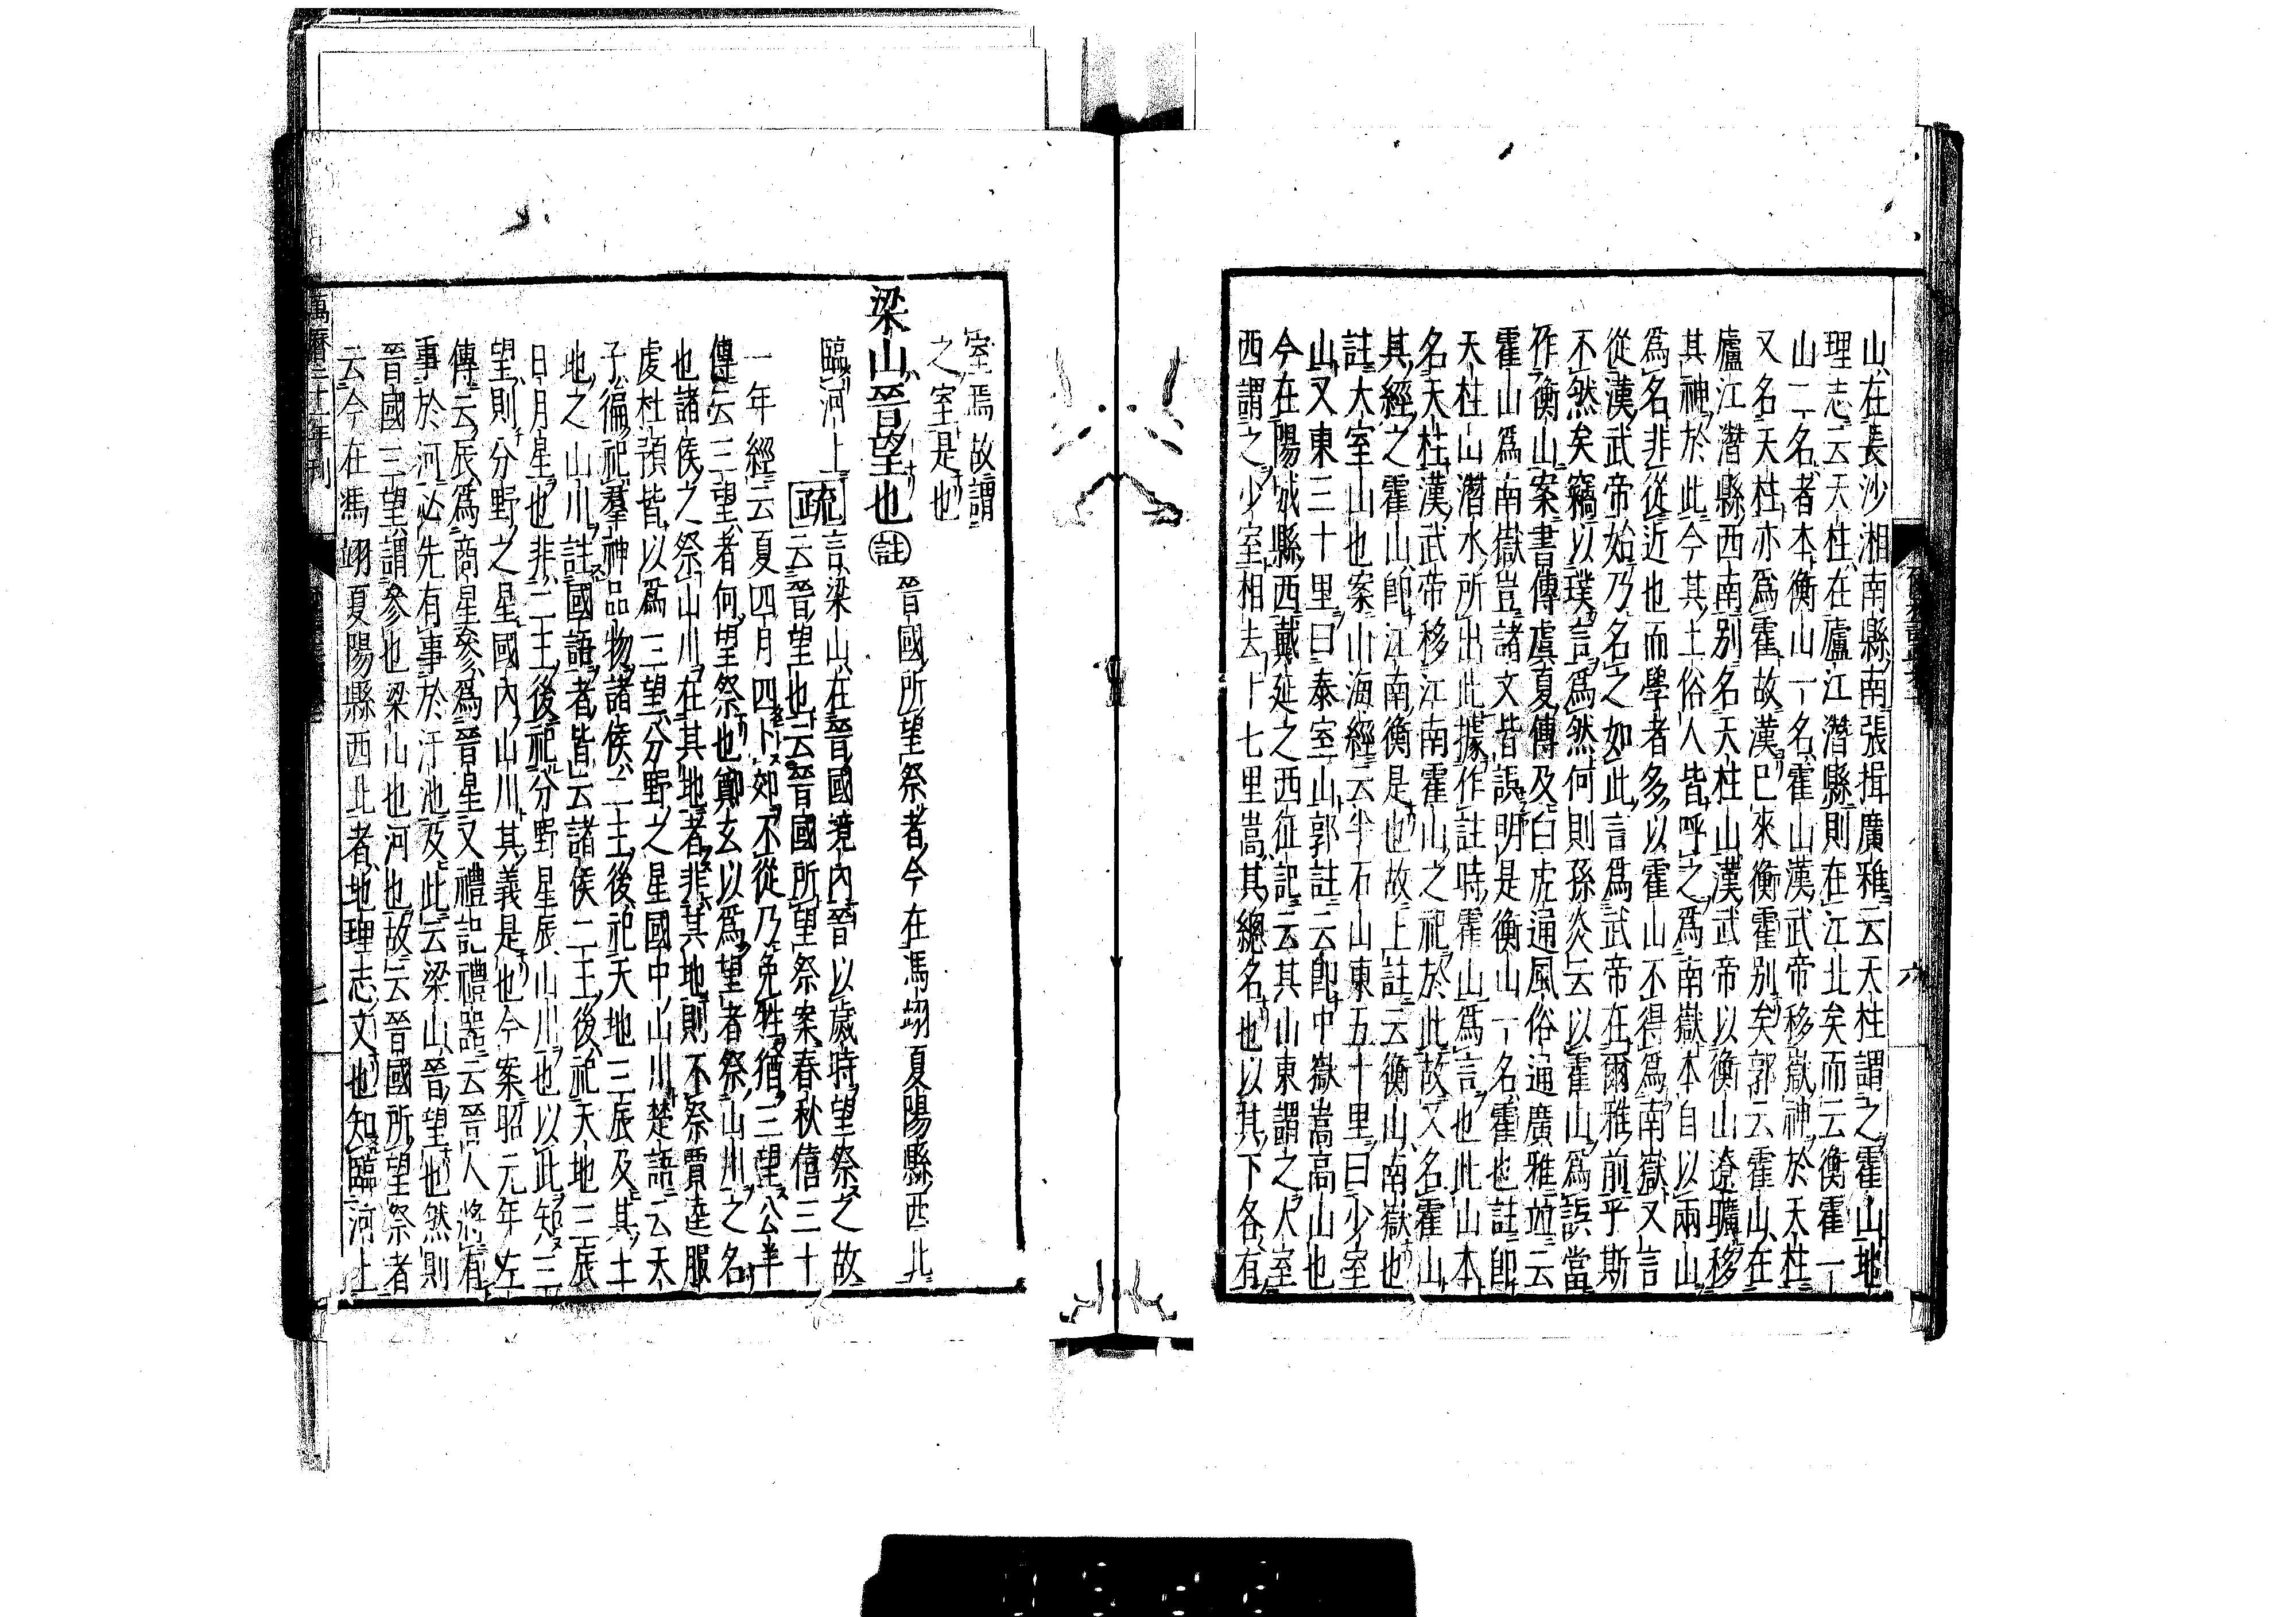 山在長沙湘南縣南張揖廣雅云天柱謂之霍山地
理志云天柱在廬江潛縣則在江北矣而云衡霍一
山二名者本衡山一名霍山漢武帝移嶽神於天柱
又名天柱亦爲霍故漢巳來衡霍別矣郭云霍山在
廬江潛縣西南別名天柱山漢武帝以衡山遼曠移
其神於此今其土俗人皆呼之爲南嶽本自以兩山
爲名非從近也而學者多以霍山不得爲南嶽又言
從漢武帝始乃名之如此言爲武帝在爾雅前乎斯
不然矣竊以璞言爲然何則孫炎云以霍山爲誤當
作衡山案書傳虞夏傳及白虎通風俗通廣雅竝云
霍山爲南嶽豈諸文皆誤明是衡山一名霍也註即
天柱山潛水所出此據作註時霍山爲言也此山本
名天柱漢武帝移江南霍山之祀於此故又名霍山
其經之霍山即江南衡是也故上註云衡山南嶽也
註大室山也案山海經云半石山東五十里曰少室
山又東三十里曰泰室山郭註云即中嶽嵩高山也
今在陽城縣西戴延之西征記云其山東謂之大室
西謂之少室相去十七里嵩其總名也以其下各有
六
室焉故謂
之室是也
梁山晉望也註晉國所望祭者今在馮翊夏陽縣西北
臨河上疏言梁山在晉國境內晉以歲時望祭之故
云晉望也云晉國所望祭案春秋僖三十
一年經云夏四月四卜郊不從乃免牲猶三望公羊
傳云三望者何望祭也鄭玄以爲望者祭山川之名
也諸侯之祭山川在其地者非其地則不祭賈逵服
虔杜預皆以爲三望分野之星國中山川楚語云天
子徧祀羣神品物諸侯二王後祀天地三辰及其土
地之山川註國語者皆云諸侯二王後祀天地三辰
日月星也非二王後祀分野星辰山川也以此知三
望則分野之星國內山川其義是也今案昭元年左
傳云辰爲商星參爲晉星又禮記禮器云晉人將有
事於河必先有事於汙池及此云梁山晉望也然則
晉國三望謂參也梁山也河也故云晉國所望祭者
云今在馮翊夏陽縣西北者地理志文也知臨河上
萬曆二十一年刊